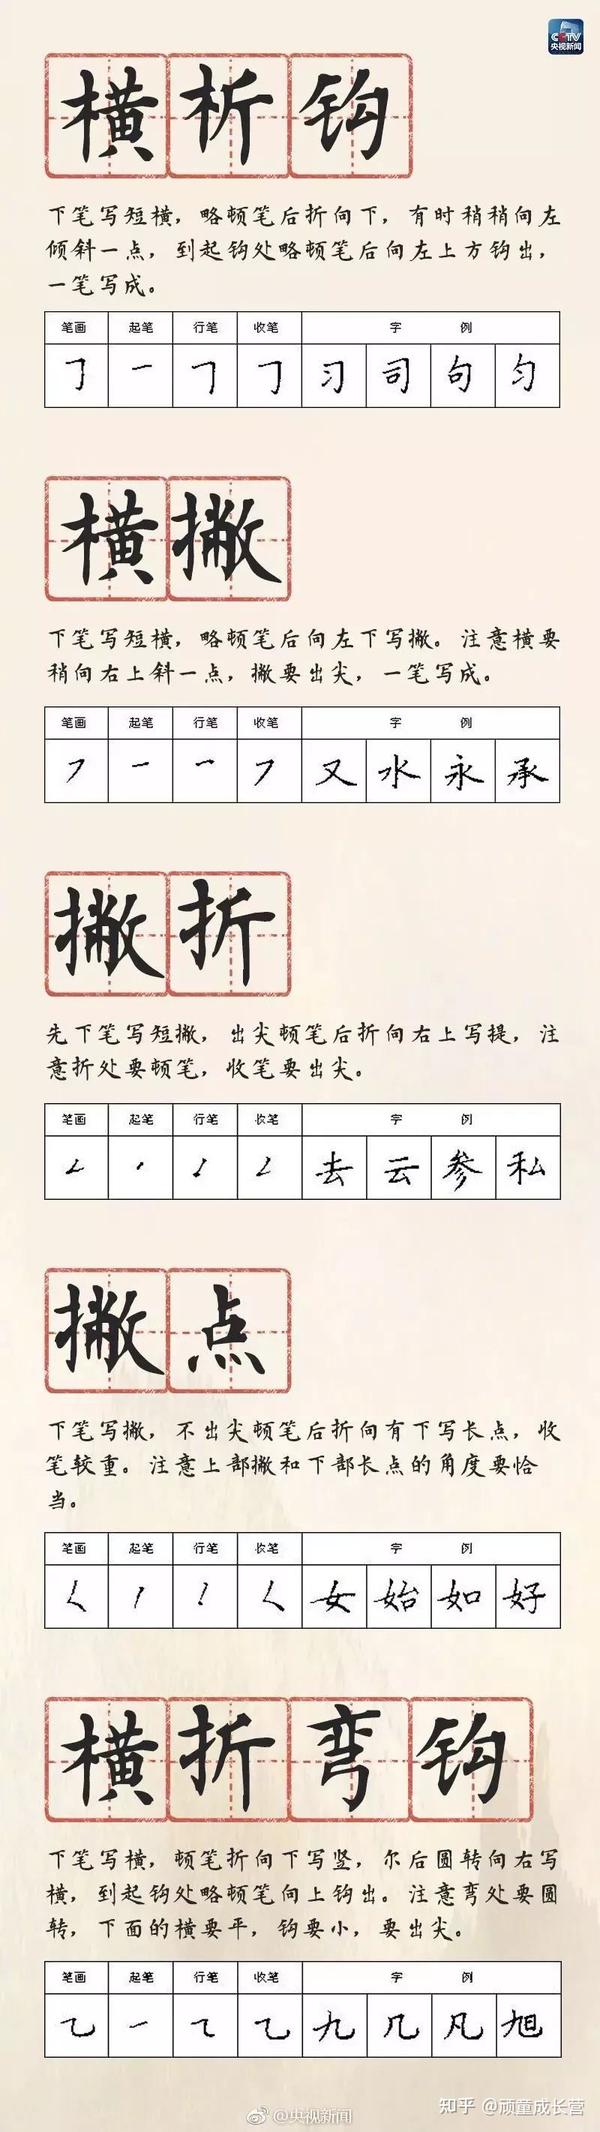 CCTV
央视新闻
横析钩
下笔写短横，略顿笔后折向下，有时稍稍向左
倾斜一点，到起钩处略顿笔后向左上方钩出，
一笔写成。
笔画 起笔 行笔 收笔 字 例
习 司 句 匀
横撇
下笔写短横，略顿笔后向左下写撇。注意横要
稍向右上斜一点，撇要出尖，一笔写成。
笔画 起笔 行笔 收笔 字 例
又 水 永 承
撇折
先下笔写短撇，出尖顿笔后折向右上写提，注
意折处要顿笔，收笔要出尖。
笔画 起笔 行笔 收笔 字 例
去 云 参 私
撇点
下笔写撇，不出尖顿笔后折向有下写长点，收
笔较重。注意上部撇和下部长点的角度要恰
当。
笔画 起笔 行笔 收笔 字 例
女 始 如 好
横折弯钩
下笔写横，顿笔折向下写竖，尔后圆转向右写
横，到起钩处略顿笔向上钩出。注意弯处要圆
转，下面的横要平，钩要小，要出尖。
笔画 起笔 行笔 收笔 字 例
九 几 凡 旭
@央视新闻
知乎 @顽童成长营